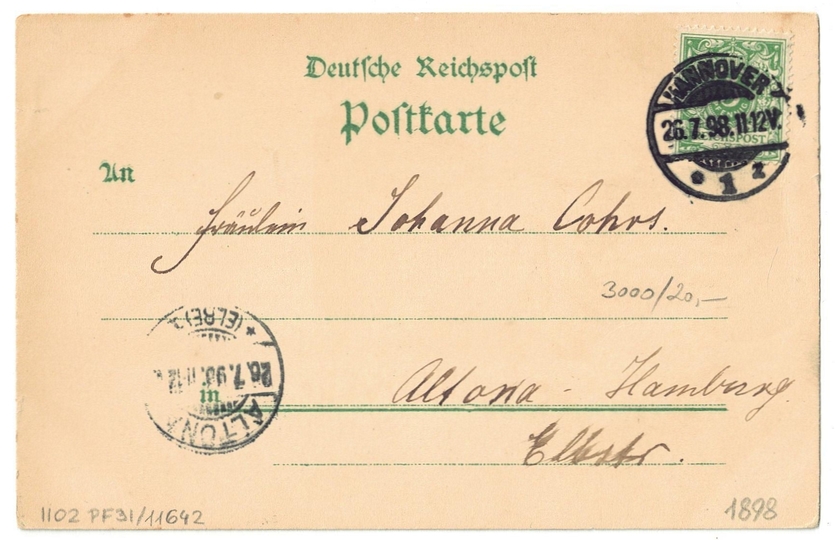 Deutsche Reichspost
Postkarte
HANNOVER
26.7.98.11-12V.
REICHSPOST
* 1 z
An
Fräulein Johanna Cohrs.
3000/20,-
* (ELBE) 1
26.7.98.11-12
in
ALTONA
Altona - Hamburg
Elbstr.
1102 PF31/11642
1898